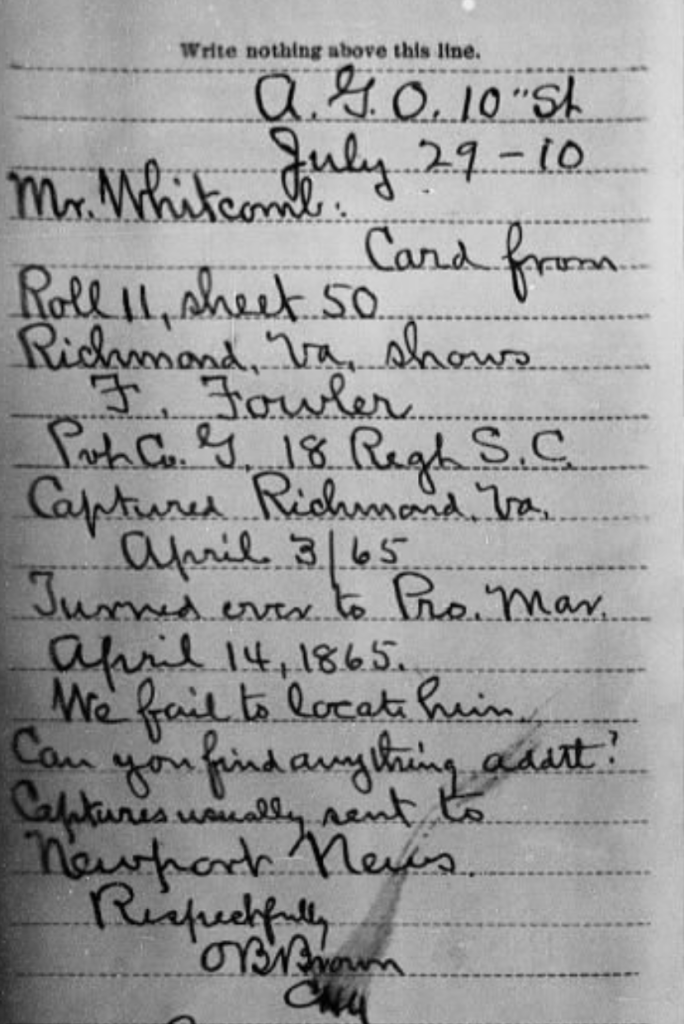 Write nothing above this line.
A. G. O. 10" St
July 29 - 10
Mr. Whitcomb:
Card from
Roll 11, sheet 50
Richmond, Va, shows
F. Fowler
Pvt Co. G, 18 Regt S. C.
Captured Richmond, Va.
April 3/65
Turned over to Pro. Mar.
April 14, 1865.
We fail to locate him.
Can you find anything addtl?
Captures usually sent to
Newport News.
Respectfully
OB Brown